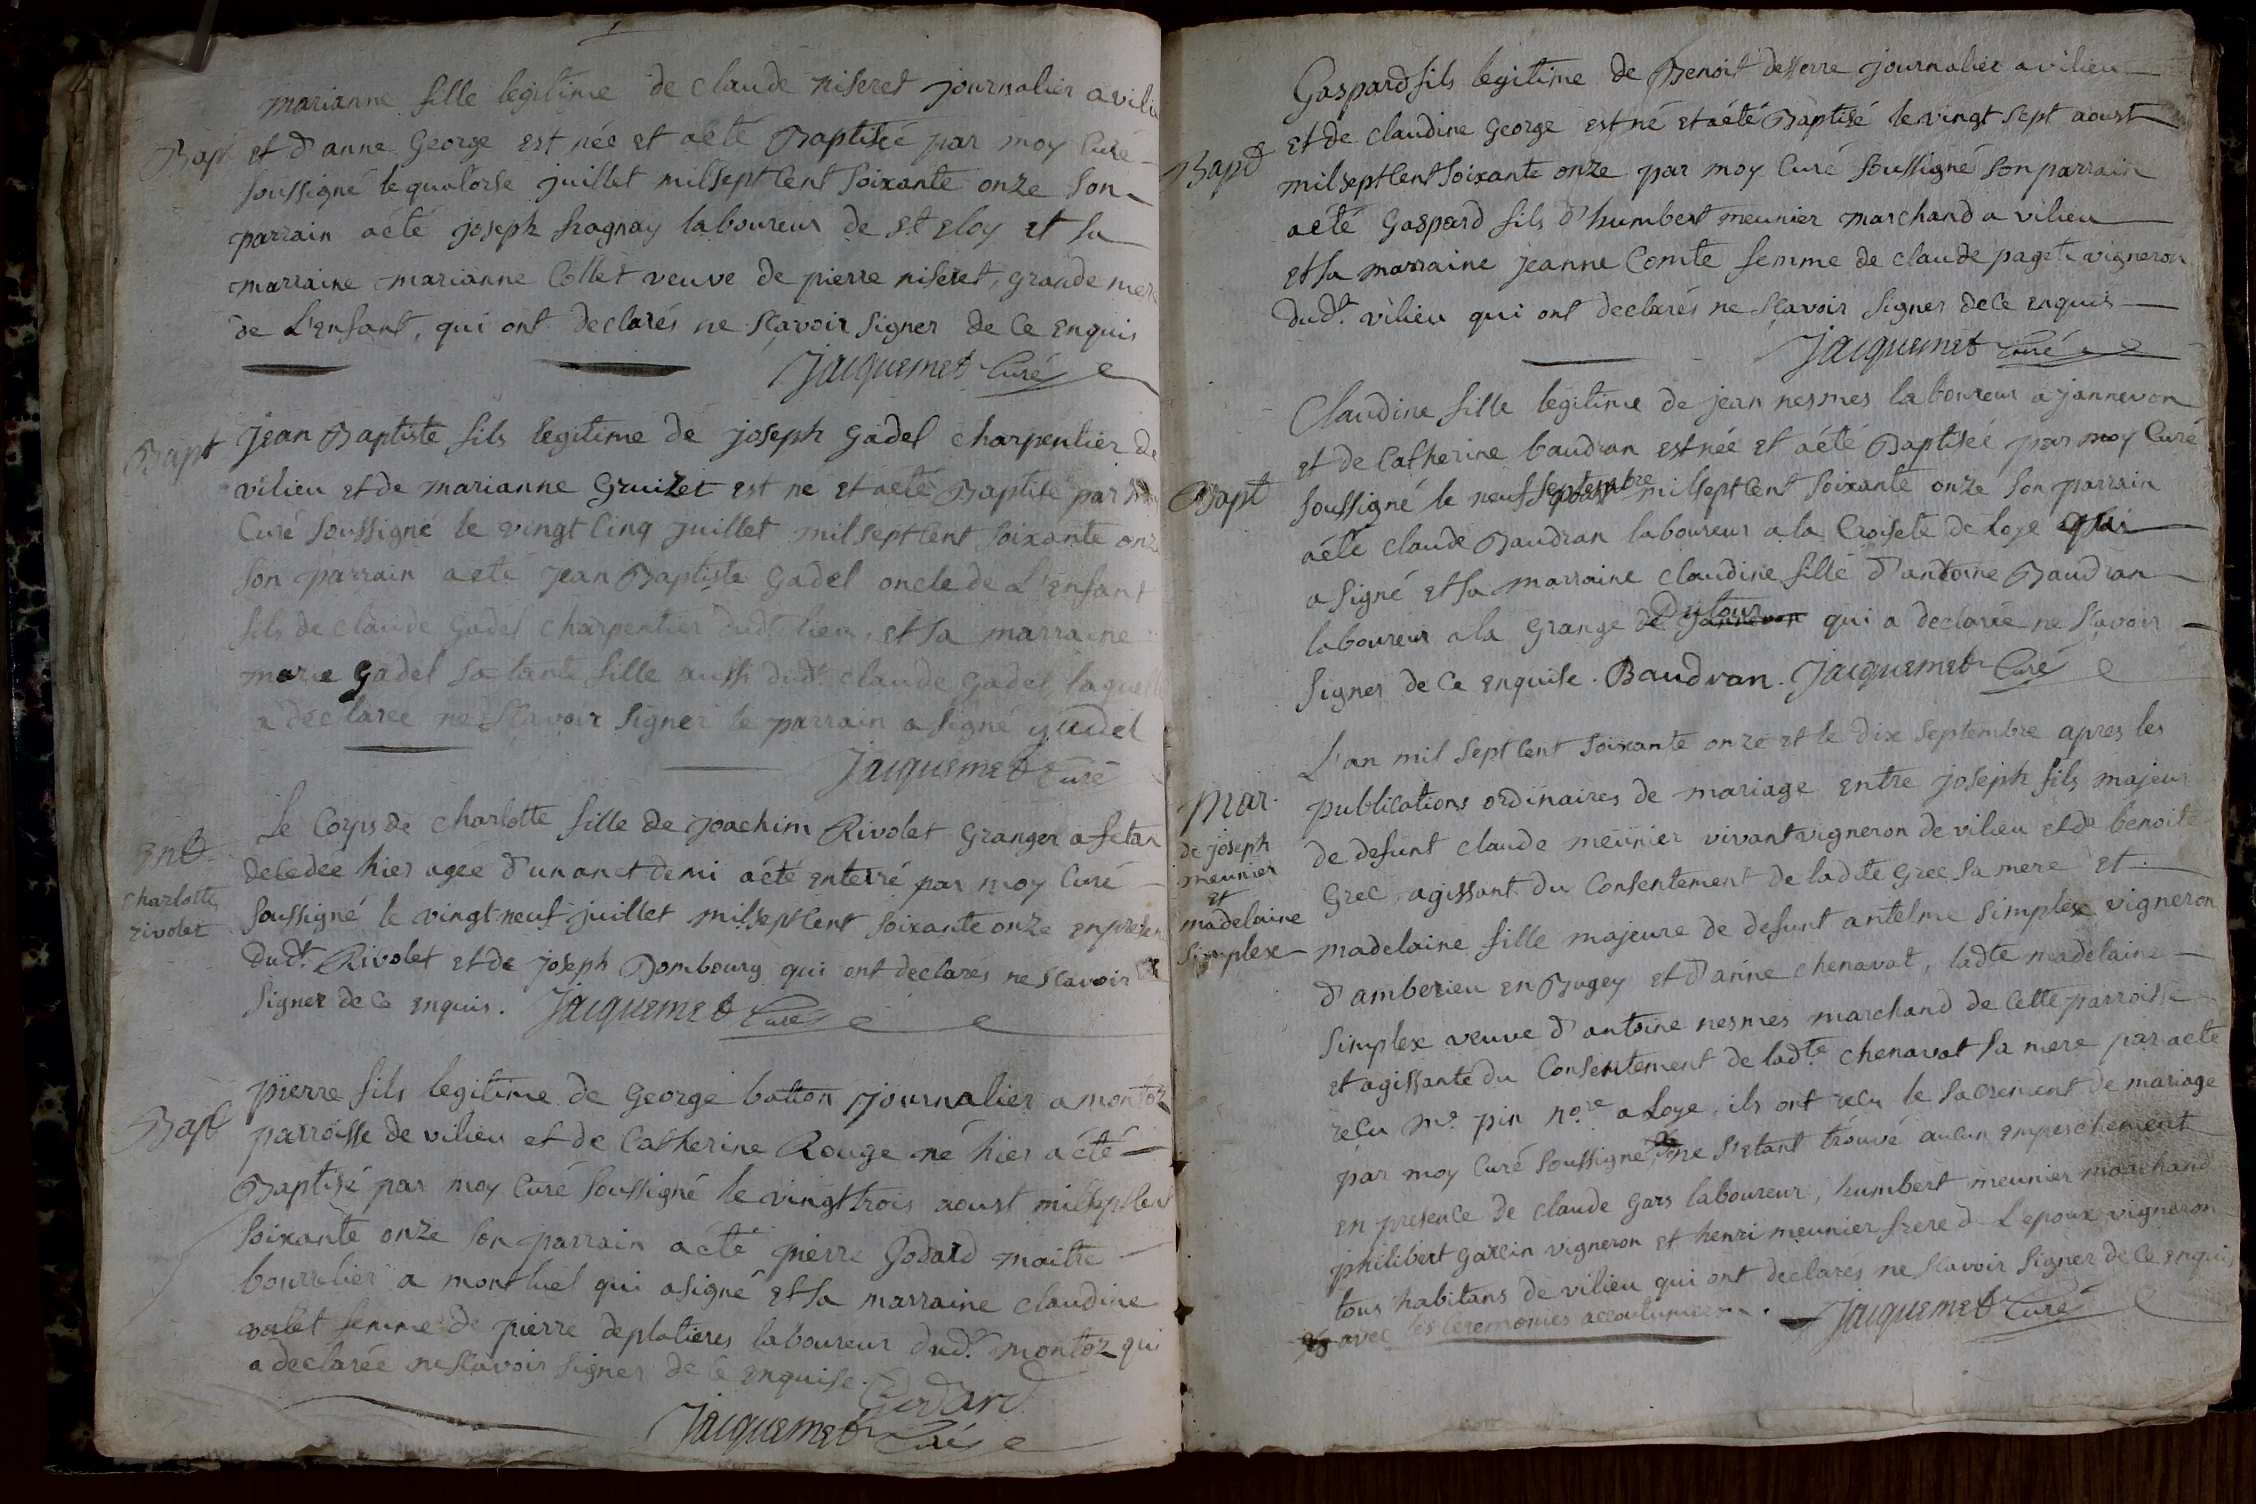 marianne fille legitime de claude niseret journalier a vilieu
Bapt et d'anne George est née et aeté Baptisée par moy Curé
soussigné le quatorse juillet milseptcent soixante onze son
parrain aété joseph fragnay laboureur de st eloy et sa
marraine marianne Collet veuve de pierre niseret, grande mere
de L'enfant, qui ont declarés ne sçavoir signer de ce enquis
Jacquemet Curé
Bapt Jean Baptiste fils legitime de joseph Gadel charpentier de
vilieu et de marianne Gruizet est né et aété Baptisé par
Curé soussigné le vingt cinq juillet milseptcent soixante onze
son parrain aeté jean Baptiste Gadel oncle de L'enfant
fils de claude Gadel charpentier dudt. lieu, et sa marraine
marie Gadel sa tante fille aussi dudt. claude Gadel laquelle
a declaree ne sçavoir signer le parrain a signé gadel
Jacquemet Curé
Ent.
charlotte
rivolet
Le Corps de charlotte fille de joachim Rivolet Granger a fetan
decedée hier agée d'un an et demi aété enterré par moy Curé
soussigné le vingt-neuf juillet milseptcent soixante onze en presence
dudt. Rivolet et de joseph Dombourg qui ont declarés ne sçavoir
signer de ce enquis. Jacquemet Curé
Bapt
pierre fils legitime de George batton journalier a montoz
parroisse de vilieu et de Catherine Rouge né hier aété
Baptisé par moy Curé soussigné le vingt trois aoust milseptcent
soixante onze son parrain aété pierre Godard maitre
bourrelier a montluel qui a signé et sa marraine claudine
valet femme de pierre deplatieres laboureur dudt. montoz qui
a declarée ne sçavoir signer de ce enquise. Godard
Jacquemet Curé
Gaspard fils legitime de Benoit desserre journalier a vilieu
et de claudine George est né et aété Baptisé le vingt sept aoust
Bapt
milseptcent soixante onze par moy Curé soussigné son parrain
aété Gaspard fils d'humbert meunier marchand a vilieu
et sa marraine jeanne Comte femme de claude paget vigneron
dudt. vilieu qui ont declarés ne sçavoir signer de ce enquis
Jacquemet Curé
Claudine fille legitime de jean nesmes laboureur a jannevon
et de Catherine baudran est née et aété Baptisée par moy Curé
Bapt soussigné le neuf septembre milseptcent soixante onze son parrain
aété claude Baudran laboureur a la Croisete de Loye qui
a signé et sa marraine claudine fille d'antoine Baudran
laboureur a la Grange de Dutour jannevon qui a declarée ne sçavoir
signer de ce enquise. Baudran. Jacquemet Curé
L'an mil septcent soixante onze et le dix septembre apres les
Mar.
de joseph
meunier
et
madelaine
simplex
publications ordinaires de mariage entre joseph fils majeur
de defunt claude meunier vivant vigneron de vilieu et de benoite
Grec, agissant du Consentement de ladte Grec sa mere et
madelaine fille majeure de defunt antelme simplex vigneron
d'amberieu en Bugey et d'anne chenavat, ladte madelaine
simplex veuve d'antoine nesmes marchand de cette parroisse
et agissante du Consentement de ladte. chenavat sa mere par acte
recu me. pin nore. a Loye, ils ont recu le sacrement de mariage
par moy Curé soussigné, ne s'etant trouvé aucun empeschement
en presence de claude Gars laboureur, humbert meunier marchand
philibert Garcin vigneron et henri meunier frere de L'epoux vigneron
tous habitans de vilieu qui ont declarés ne sçavoir signer de ce enquis
avec les ceremonies accoutumées. Jacquemet Curé